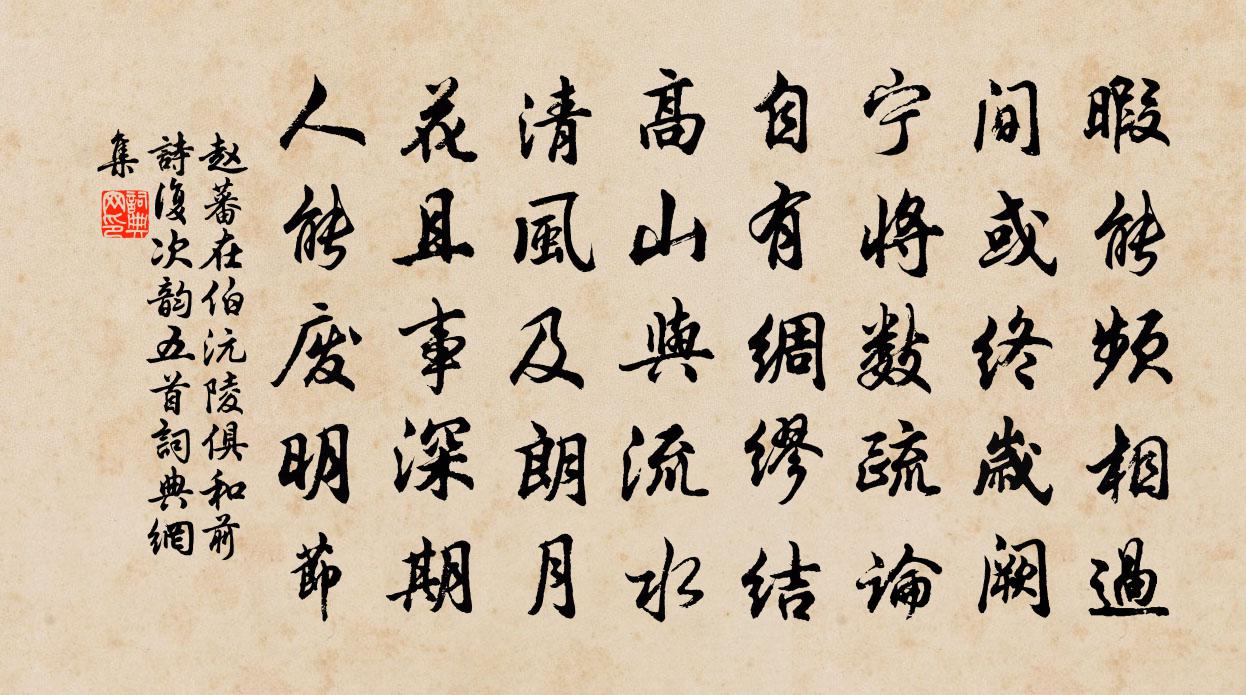 暇能频相過
间或终歲阙
宁將数疏論
自有綢缪结
高山與流水
清風及朗月
花且事深期
人能废明节
赵蕃在伯沅陵俱和前
詩復次韵五首詞典網
集
詞典网印